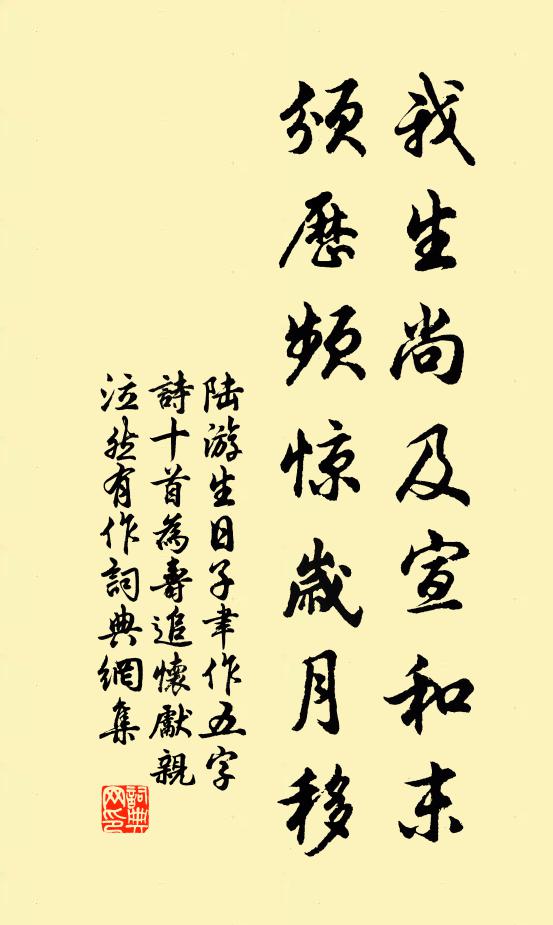 我生尚及宣和末
頒歷頻惊歲月移
陆游生日子聿作五字
詩十首為壽追懷獻親
泣然有作詞典網集
詞典
网印